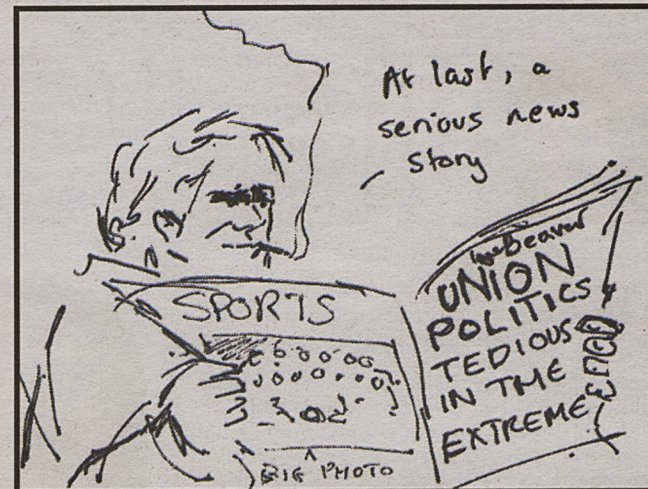 At last, a
serious news
story
SPORTS
BIG PHOTO
the Beaver
UNION
POLITICS
TEDIOUS
IN THE
EXTREME